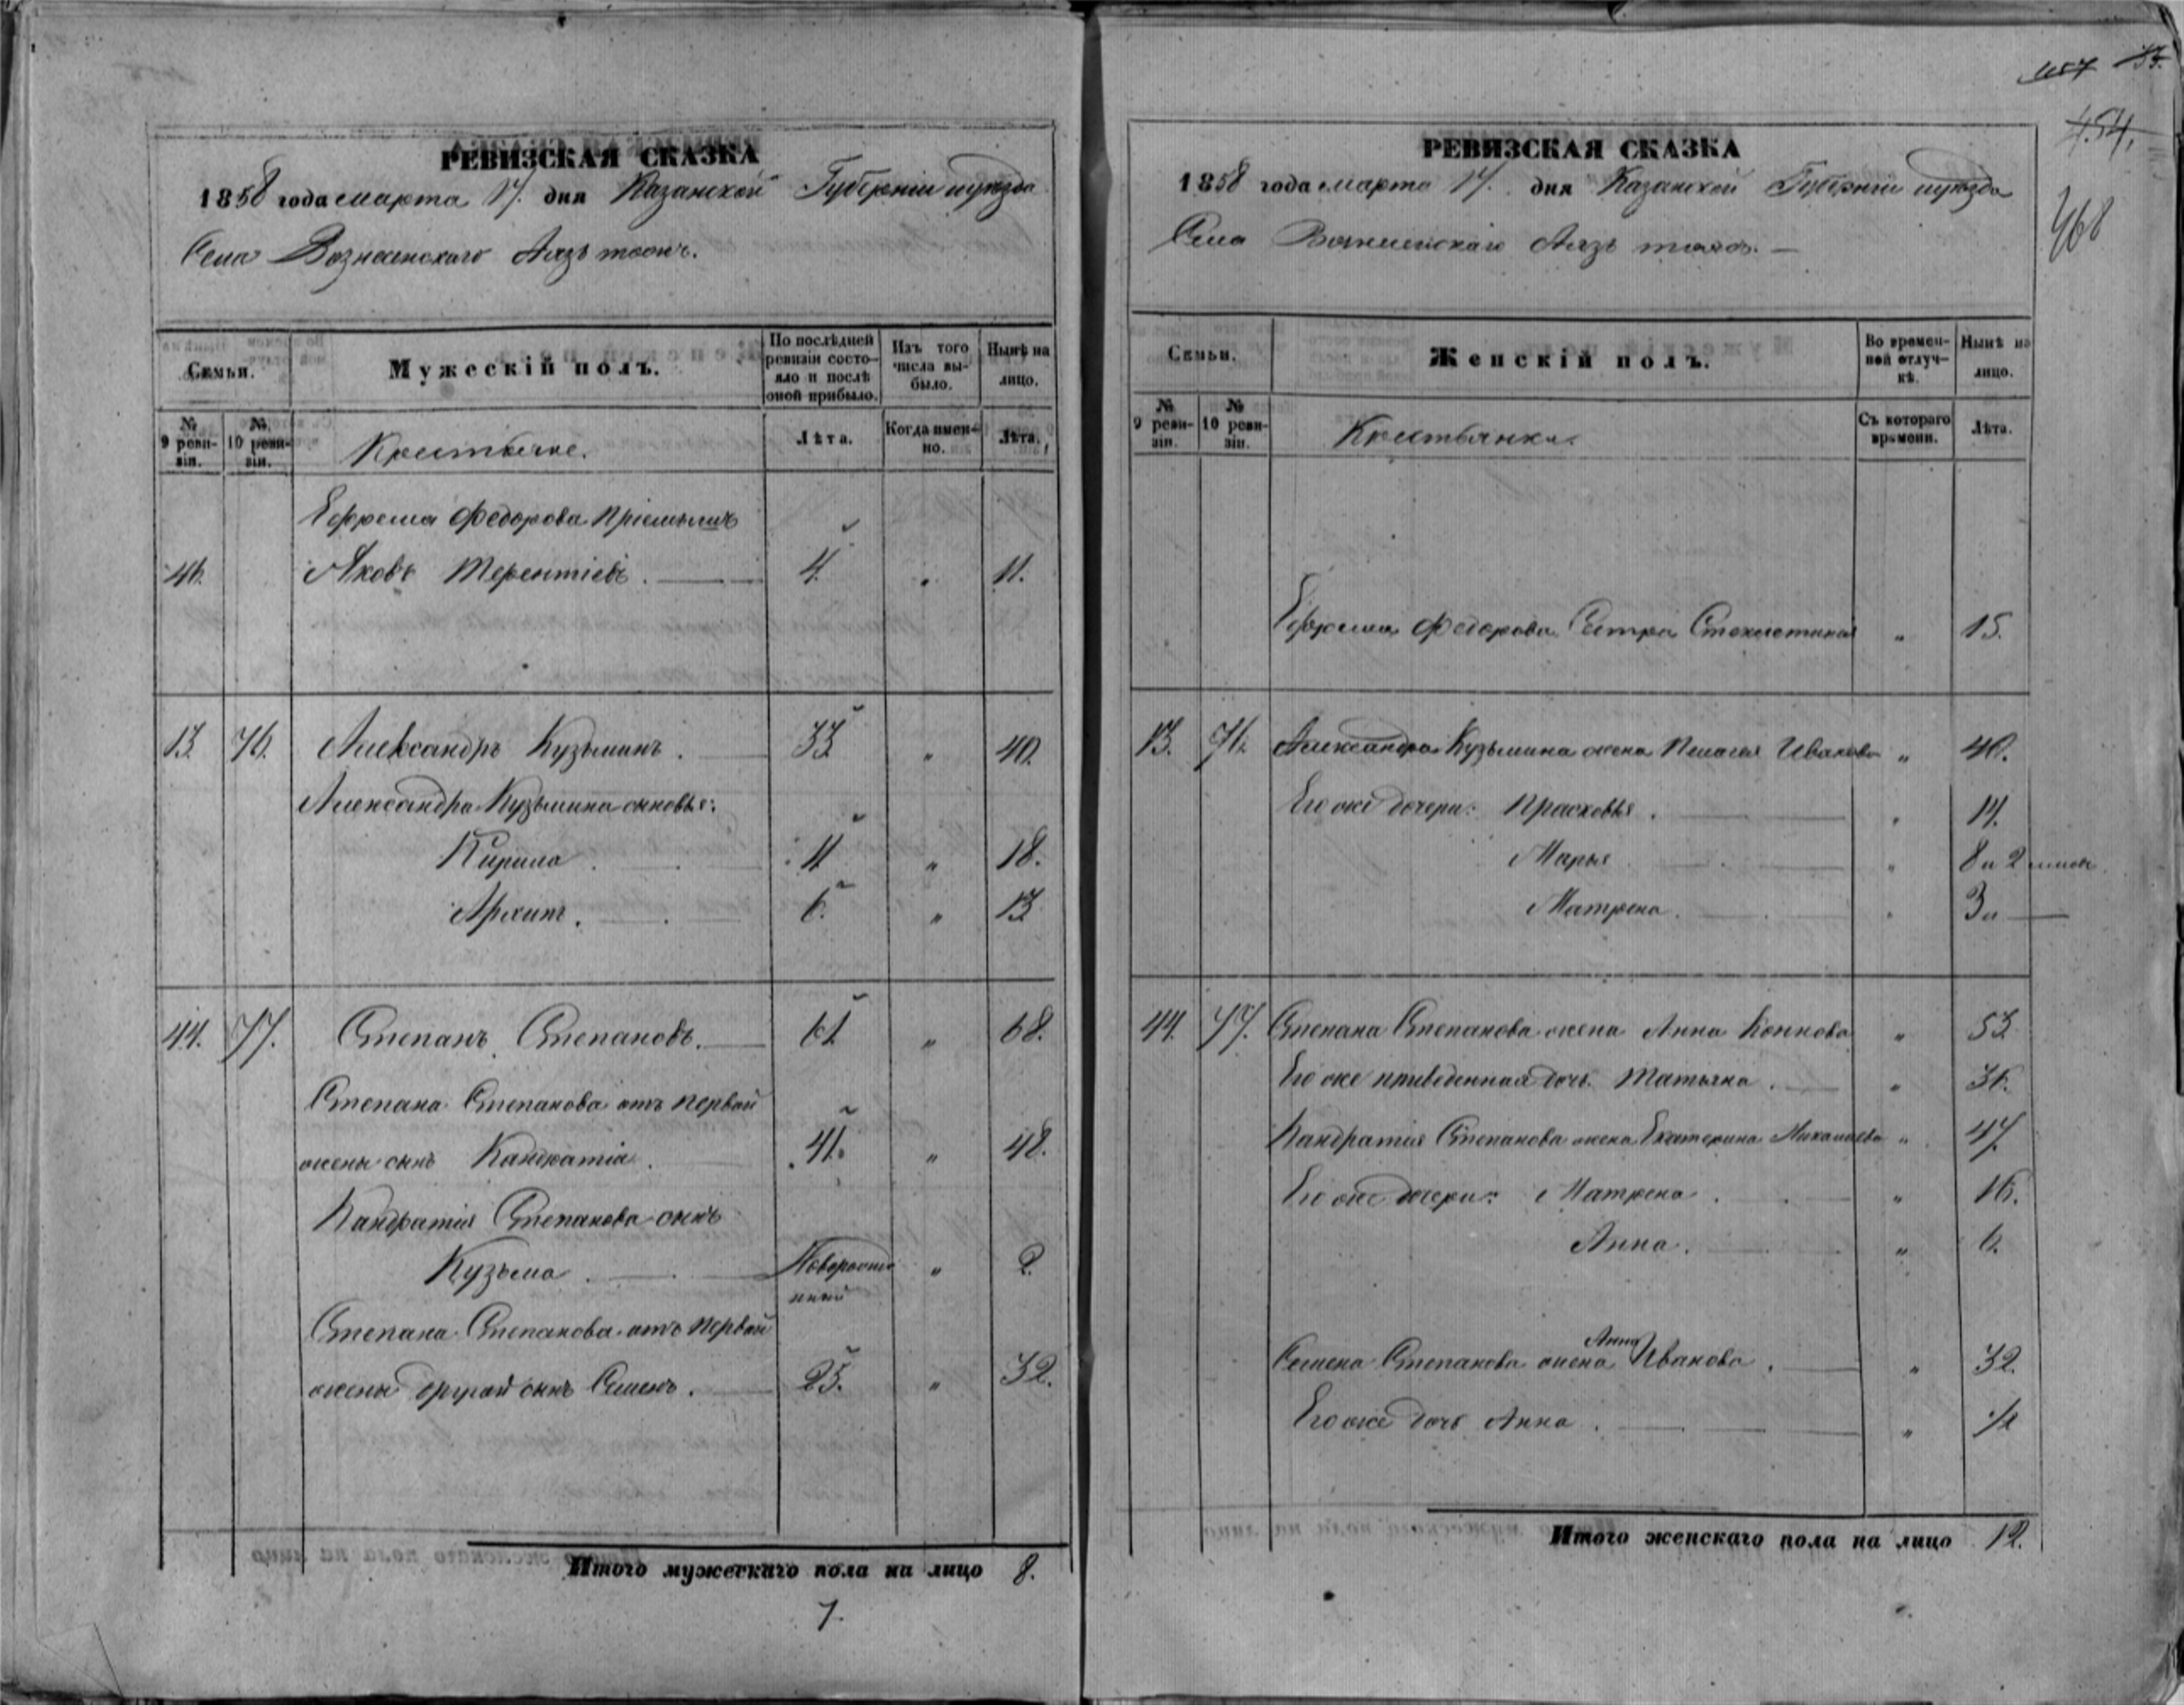 РЕВИЗСКАЯ СКАЗКА
1858 года марта 17. дня Казанской Губерніи и уѣзда
Села Вознесенскаго Аязъ тожъ.
Семьи.
Мужескій полъ.
По послѣдней ревизіи состояло и послѣ оной прибыло.
Изъ того числа выбыло.
Нынѣ на лицо.
№ 9 ревизіи.
№ 10 ревизіи.
Крестьяне.
Лѣта.
Когда именно.
Лѣта.
Ефрема Федорова пріемышъ
46. Яковъ Терентіевъ. 4. „ 11.
13. 76. Александръ Кузьминъ. 33 „ 40.
Александра Кузьмина сыновья:
Кирила 11 „ 18.
Архипъ. 6. „ 13
44. 77. Степанъ Степановъ. 61 „ 68.
Степана Степанова отъ первой
жены сынъ Кандратій. 41. „ 48.
Кандратія Степанова сынъ
Кузьма Новорожденный „ 2.
Степана Степанова отъ первой
жены другой сынъ Семенъ. 25. „ 32.
Итого мужескаго пола на лицо 8.
7.
457
454.
468
РЕВИЗСКАЯ СКАЗКА
1858 года марта 17. дня Казанской Губерніи и уѣзда
Села Вознесенскаго Аязъ тожъ.
Семьи.
Женскій полъ.
Во временной отлучкѣ.
Нынѣ на лицо.
№ 9 ревизіи.
№ 10 ревизіи.
Крестьянки.
Съ котораго времени.
Лѣта.
Ефрема Федорова сестра „ 15.
13. 76. Александра Кузьмина жена Пелагея Иванова „ 40.
Его же дочери: Прасковья. „ 14.
Марья „ 8 и 2
Матрена. „ 3 и
44. 77. Степана Степанова жена Анна Кононова „ 53
Его же приведенная дочь Татьяна. „ 36.
Кандратія Степанова жена Екатерина Михайлова „ 47.
Его же дочери: Матрена. „ 16.
Анна. „ 6.
Семена Степанова жена Анна Иванова. „ 32.
Его же дочь Анна. „ ½
Итого женскаго пола на лицо 12.